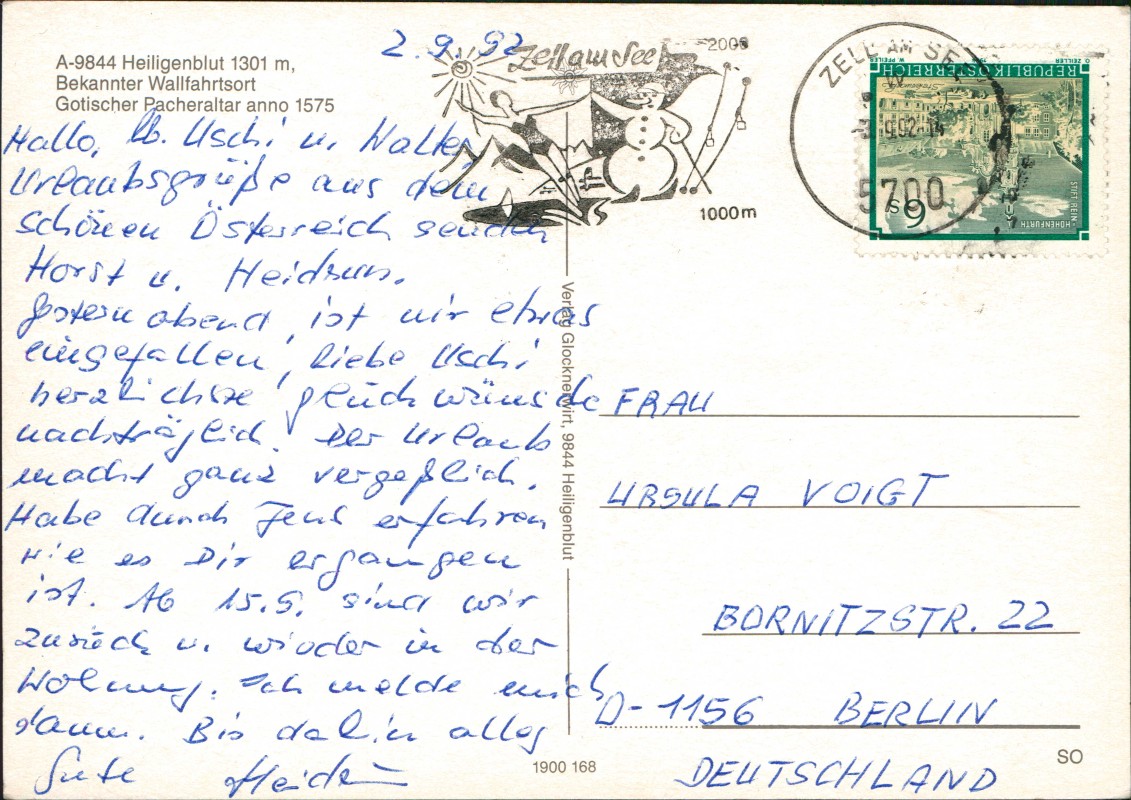 A-9844 Heiligenblut 1301 m,
Bekannter Wallfahrtsort
Gotischer Pacheraltar anno 1575
2.9.92
Hallo, lb. Uschi u. Walter,
Urlaubsgrüße aus dem
schönen Österreich senden
Horst u. Heidrun.
Gestern abend, ist mir etwas
eingefallen, liebe Uschi
herzlichste Glückwünsche
nachträglich. Der Urlaub
macht ganz vergeßlich.
Habe durch Jens erfahren
wie es Dir ergangen
ist. Ab 15.9. sind wir
zurück u. wieder in der
Wohnung. Ich melde mich
dann. Bis dahin alles
Gute Heidrun
Verlag Glocknerwirt, 9844 Heiligenblut
1900 168
SO
Zell am See
2000
1000m
ZELL AM SEE
5700
REPUBLIK ÖSTERREICH
STIFT REIN-HOHENFURTH
S6
O. ZEILLER
W. PFEILER
FRAU
URSULA VOIGT
BORNITZSTR. 22
D-1156 BERLIN
DEUTSCHLAND